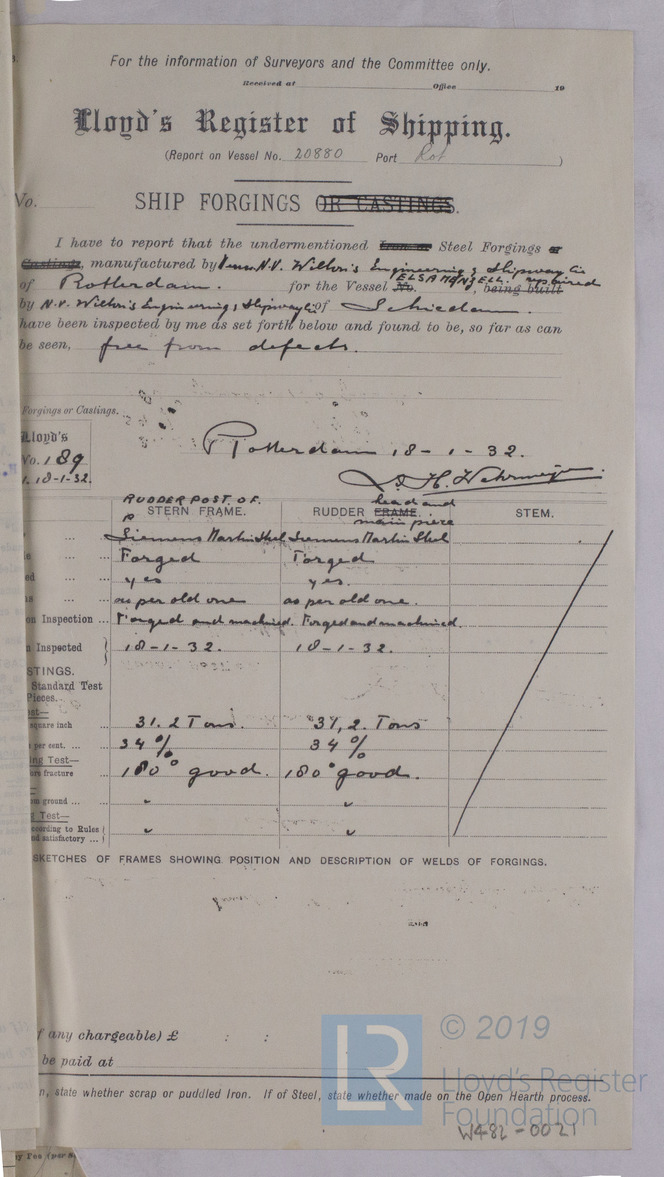 For the information of Surveyors and the Committee only.
Received at Office 19
Lloyd's Register of Shipping.
(Report on Vessel No. 20880 Port Rot )
No.
SHIP FORGINGS OR CASTINGS.
I have to report that the undermentioned Iron or Steel Forgings or
Castings, manufactured by N.V. Wilton's Engineering & Shipway Co
of Rotterdam. for the Vessel No. ELSA MENZELL. repaired being built
by N.V. Wilton's Engineering & Shipway Co of Schiedam.
have been inspected by me as set forth below and found to be, so far as can
be seen, free from defects.
Forgings or Castings.
Lloyd's
No. 189
18-1-32.
Rotterdam 18-1-32.
RUDDER POST OF.
STERN FRAME.
head and
RUDDER FRAME.
main piece
STEM.
Siemens Martin Steel Siemens Martin Steel
Forged Forged
yes yes.
as per old one as per old one.
on Inspection ... Forged and machined. Forged and machined.
Inspected 18-1-32. 18-1-32.
STINGS.
Standard Test
Pieces.
square inch 31.2 Tons. 31,2. Tons
per cent. ... 34% 34%
ing Test—
ure fracture 180° good. 180° good.
om ground ... " "
g Test—
ccording to Rules
nd satisfactory ... " "
SKETCHES OF FRAMES SHOWING POSITION AND DESCRIPTION OF WELDS OF FORGINGS.
f any chargeable) £ : :
be paid at
n, state whether scrap or puddled Iron. If of Steel, state whether made on the Open Hearth process.
LR
© 2019
Lloyd's Register
Foundation
W482-0021